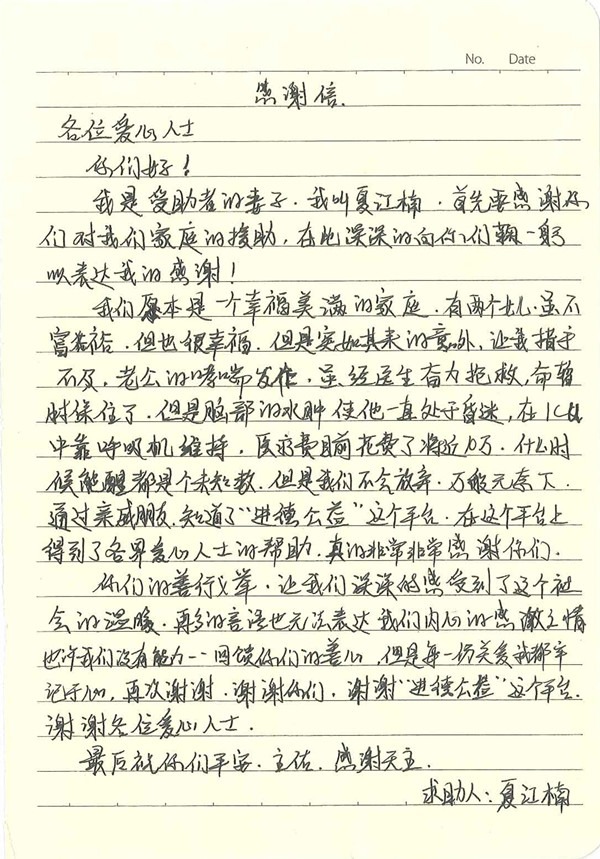 No. Date
感谢信.
各位爱心人士
你们好！
我是受助者的妻子．我叫夏江楠．首先要感谢你
们对我们家庭的援助，在此深深的向你们鞠一躬
以表达我的感谢！
我们原本是一个幸福美满的家庭．有两个女儿．虽不
富裕．但也很幸福．但是突如其来的意外，让我措手
不及，老公的哮喘发作，虽经医生奋力抢救，命暂
时保住了．但是脑部的水肿使他一直处于昏迷，在ICU
中靠呼吸机维持，医疗费目前花费了将近10万．什么时
候能醒都是个未知数．但是我们不会放弃．万般无奈下．
通过亲戚朋友．知道了“进德公益”这个平台．在这个平台上
得到了各界爱心人士的帮助．真的非常非常感谢你们．
你们的善行义举．让我们深深的感受到了这个社
会的温暖．再多的言语也无法表达我们内心的感激之情
也许我们没有能力一一回馈你们的善心，但是每一份关爱我都牢
记于心，再次谢谢．谢谢你们．谢谢“进德公益”这个平台．
谢谢各位爱心人士．
最后祝你们平安．主佑．感谢天主．
求助人：夏江楠